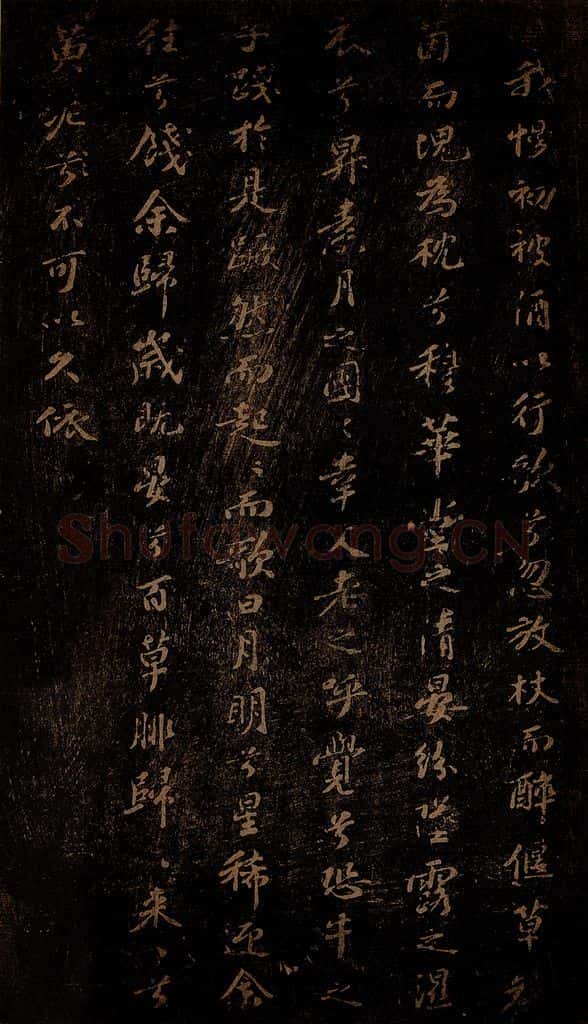 我慢初被酒以行歌兮忽放杖而醉偃草為
茵而塊為枕兮穆華堂之清晏紛墜露之濕
衣兮昇素月之團〻幸父老之呼覺兮恐牛之
予踐於是蹶然而起〻而歌曰月明兮星稀迎余
往兮餞余歸歲既晏兮百草腓歸〻来〻兮
黃泥兮不可以久依
Shufawang.CN